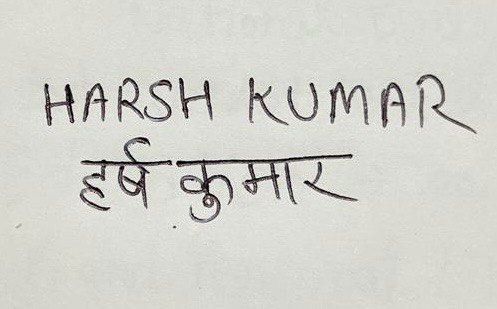 HARSH KUMAR
हर्ष कुमार